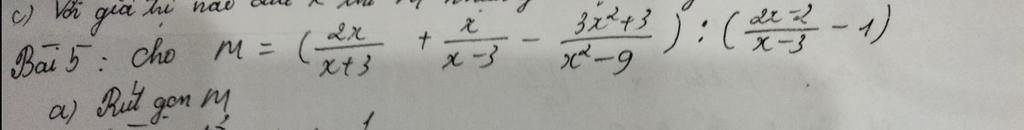 c) Với giá trị nào của x thì M
Bài 5 : Cho M = ( \frac{2x}{x+3} + \frac{x}{x-3} - \frac{3x^2+3}{x^2-9} ) : ( \frac{2x-2}{x-3} - 1 )
a) Rút gọn M